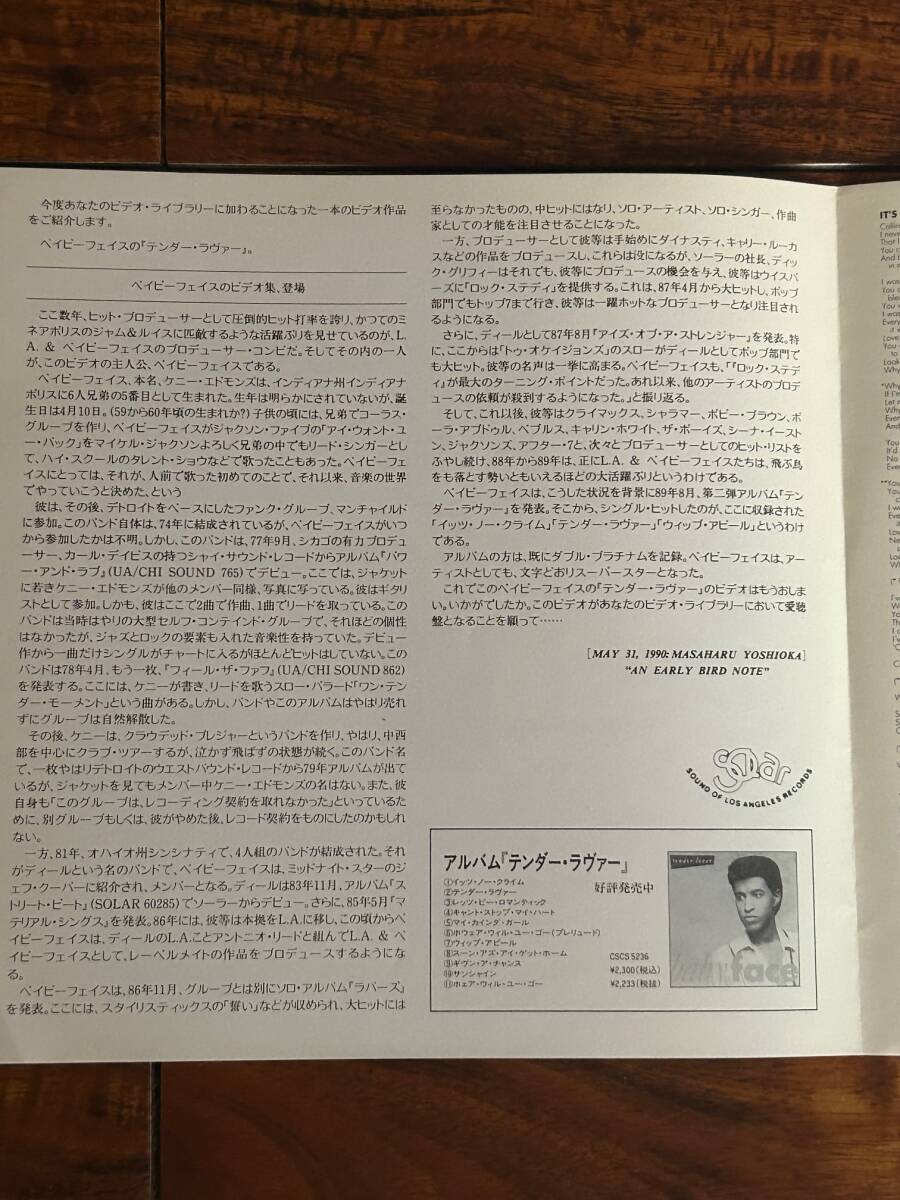 今度あなたのビデオ・ライブラリーに加わることになった一本のビデオ作品
をご紹介します。
ベイビーフェイスの『テンダー・ラヴァー』。
ベイビーフェイスのビデオ集、登場
ここ数年、ヒット・プロデューサーとして圧倒的ヒット打率を誇り、かつてのミ
ネアポリスのジャム&ルイスに匹敵するような活躍ぶりを見せているのが、L.
A. & ベイビーフェイスのプロデューサー・コンビだ。そしてその内の一人
が、このビデオの主人公、ベイビーフェイスである。
ベイビーフェイス、本名、ケニー・エドモンズは、インディアナ州インディアナ
ポリスに6人兄弟の5番目として生まれた。生年は明らかにされていないが、誕
生日は4月10日。(59から60年頃の生まれか?)子供の頃には、兄弟でコーラス・
グループを作り、ベイビーフェイスがジャクソン・ファイブの「アイ・ウォント・ユ
ー・バック」をマイケル・ジャクソンよろしく兄弟の中でもリード・シンガーとし
て、ハイ・スクールのタレント・ショウなどで歌ったこともあった。ベイビーフェ
イスにとっては、それが、人前で歌った初めてのことで、それ以来、音楽の世界
でやっていこうと決めた、という
彼は、その後、デトロイトをベースにしたファンク・グループ、マンチャイルド
に参加。このバンド自体は、74年に結成されているが、ベイビーフェイスがいつ
から参加したかは不明。しかし、このバンドは、77年9月、シカゴの有力プロデュ
ーサー、カール・デイビスの持つシャイ・サウンド・レコードからアルバム『パワ
ー・アンド・ラブ』(UA/CHI SOUND 765)でデビュー。ここでは、ジャケット
に若きケニー・エドモンズが他のメンバー同様、写真に写っている。彼はギタリ
ストとして参加。しかも、彼はここで2曲で作曲、1曲でリードを取っている。この
バンドは当時はやりの大型セルフ・コンテインド・グループで、それほどの個性
はなかったが、ジャズとロックの要素も入れた音楽性を持っていた。デビュー
作から一曲だけシングルがチャートに入るがほとんどヒットはしていない。この
バンドは78年4月、もう一枚、『フィール・ザ・ファフ』(UA/CHI SOUND 862)
を発表する。ここには、ケニーが書き、リードを歌うスロー・バラード「ワン・テン
ダー・モーメント」という曲がある。しかし、バンドやこのアルバムはやはり売れ
ずにグループは自然解散した。
その後、ケニーは、クラウデッド・プレジャーというバンドを作り、やはり、中西
部を中心にクラブ・ツアーするが、泣かず飛ばずの状態が続く。このバンド名
で、一枚やはりデトロイトのウエストバウンド・レコードから79年アルバムが出て
いるが、ジャケットを見てもメンバー中ケニー・エドモンズの名はない。また、彼
自身も「このグループは、レコーディング契約を取れなかった」といっているた
めに、別グループもしくは、彼がやめた後、レコード契約をものにしたのかもしれ
ない。
一方、81年、オハイオ州シンシナティで、4人組のバンドが結成された。それ
がディールという名のバンドで、ベイビーフェイスは、ミッドナイト・スターのジ
ェフ・クーパーに紹介され、メンバーとなる。ディールは83年11月、アルバム『ス
トリート・ビート』(SOLAR 60285)でソーラーからデビュー。さらに、85年5月『マ
テリアル・シングス』を発表。86年には、彼等は本拠をL.A.に移し、この頃からベ
イビーフェイスは、ディールのL.A.ことアントニオ・リードと組んでL.A. & ベ
イビーフェイスとして、レーベルメイトの作品をプロデュースするようにな
る。
ベイビーフェイスは、86年11月、グループとは別にソロ・アルバム『ラバーズ』
を発表。ここには、スタイリスティックスの「誓い」などが収められ、大ヒットには
至らなかったものの、中ヒットにはなり、ソロ・アーティスト、ソロ・シンガー、作曲
家としての才能を注目させることになった。
一方、プロデューサーとして彼等は手始めにダイナスティ、キャリー・ルーカ
スなどの作品をプロデュースし、これらは没になるが、ソーラーの社長、ディッ
ク・グリフィーはそれでも、彼等にプロデュースの機会を与え、彼等はウイスパ
ーズに「ロック・ステディ」を提供する。これは、87年4月から大ヒットし、ポップ
部門でもトップ7まで行き、彼等は一躍ホットなプロデューサーとなり注目され
るようになる。
さらに、ディールとして87年8月『アイズ・オブ・ア・ストレンジャー』を発表。特
に、ここからは「トゥ・オケイジョンズ」のスローがディールとしてポップ部門で
も大ヒット。彼等の名声は一挙に高まる。ベイビーフェイスも、「『ロック・ステデ
ィ』が最大のターニング・ポイントだった。あれ以来、他のアーティストのプロデ
ュースの依頼が殺到するようになった。」と振り返る。
そして、これ以後、彼等はクライマックス、シャラマー、ボビー・ブラウン、ポ
ーラ・アブドゥル、ペブルス、キャリン・ホワイト、ザ・ボーイズ、シーナ・イースト
ン、ジャクソンズ、アフター・7と、次々とプロデューサーとしてのヒット・リストを
ふやし続け、88年から89年は、正にL.A. & ベイビーフェイスたちは、飛ぶ鳥
をも落とす勢いともいえるほどの大活躍ぶりというわけである。
ベイビーフェイスは、こうした状況を背景に89年8月、第二弾アルバム『テン
ダー・ラヴァー』を発表。そこから、シングル・ヒットしたのが、ここに収録された
「イッツ・ノー・クライム」「テンダー・ラヴァー」「ウィップ・アピール」というわけ
である。
アルバムの方は、既にダブル・プラチナムを記録。ベイビーフェイスは、アー
ティストとしても、文字どおりスーパースターとなった。
これでこのベイビーフェイスの『テンダー・ラヴァー』のビデオはもうおしま
い。いかがでしたか。このビデオがあなたのビデオ・ライブラリーにおいて愛聴
盤となることを願って……
[MAY 31, 1990: MASAHARU YOSHIOKA]
"AN EARLY BIRD NOTE"
SOLAR
SOUND OF LOS ANGELES RECORDS
アルバム『テンダー・ラヴァー』
好評発売中
①イッツ・ノー・クライム
②テンダー・ラヴァー
③レッツ・ビー・ロマンティック
④キャント・ストップ・マイ・ハート
⑤マイ・カインダ・ガール
⑥ホウェア・ウィル・ユー・ゴー(プレリュード)
⑦ウィップ・アピール
⑧スーン・アズ・アイ・ゲット・ホーム
⑨ギヴン・ア・チャンス
⑩サンシャイン
⑪ホェア・ウィル・ユー・ゴー
CSCS 5236
¥2,300(税込)
¥2,233(税抜)
tender lover
babyface
IT'S